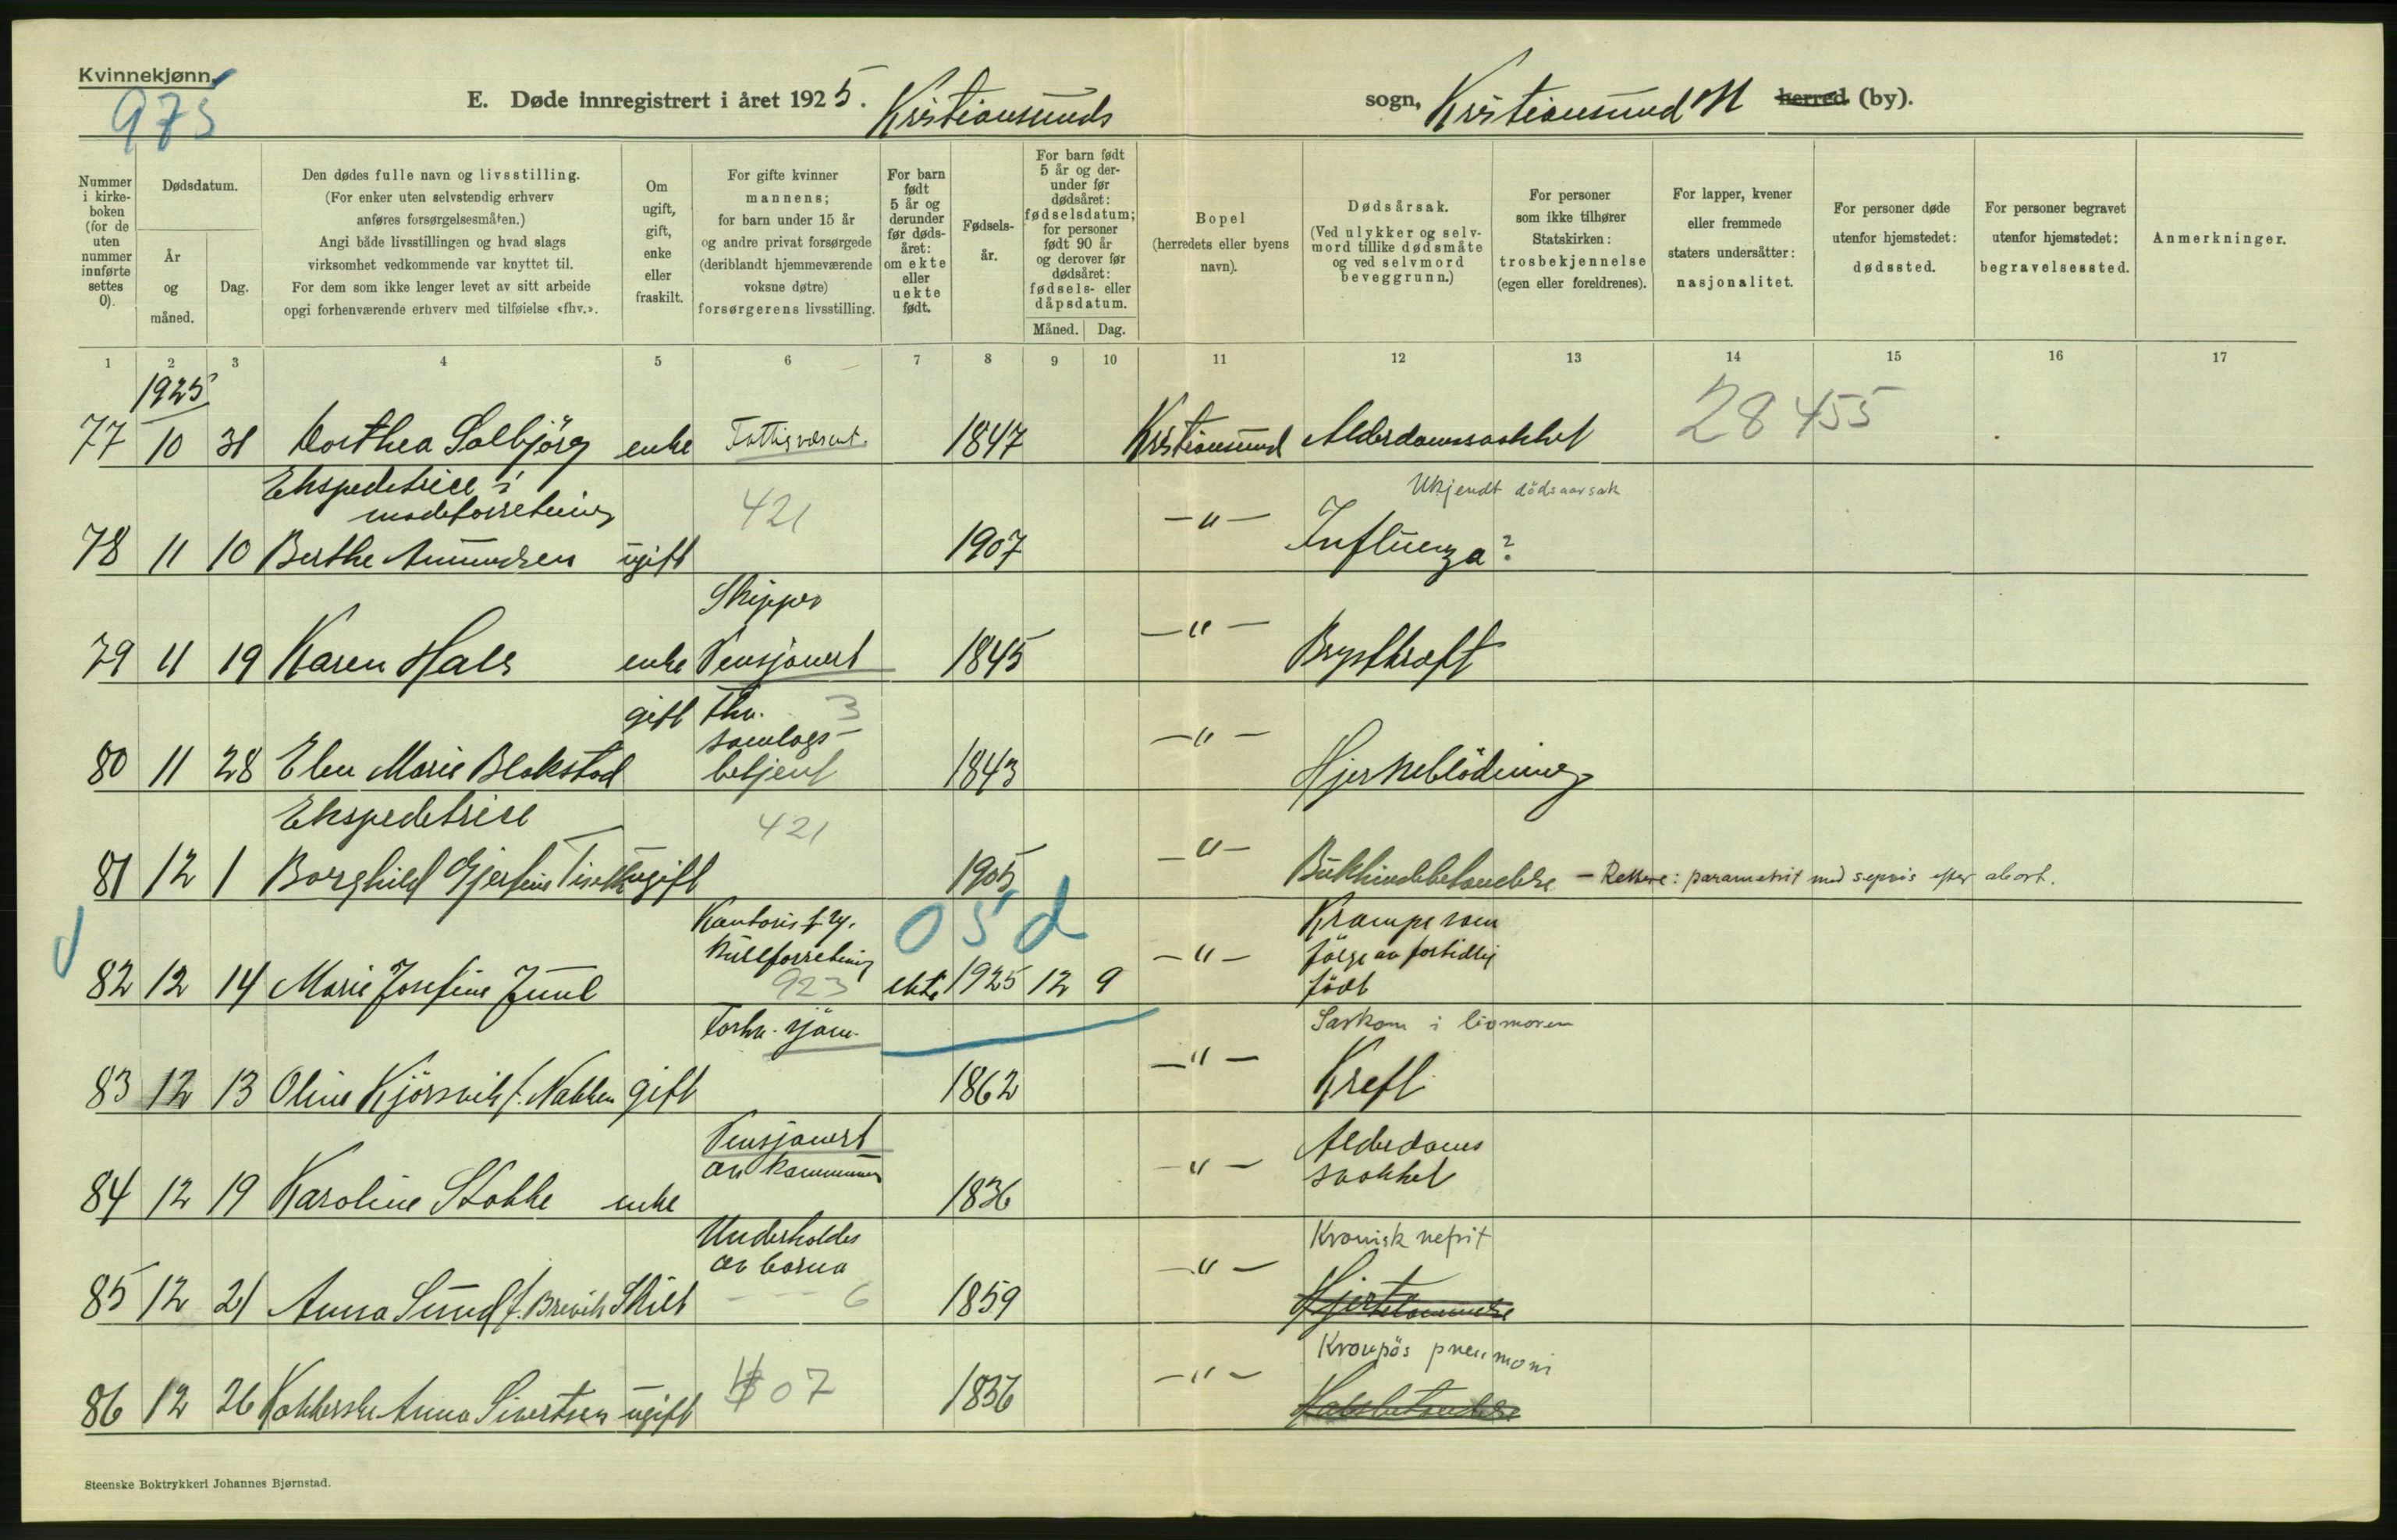 Kvinnekjønn.
975
E. Døde innregistrert i året 1925. Kristiansunds sogn, Kristiansund N herred (by).
Nummer i kirke-boken (for de uten nummer innførte settes 0).
Dødsdatum.
År og måned.
Dag.
Den dødes fulle navn og livsstilling.
(For enker uten selvstendig erhverv
anføres forsørgelsesmåten.)
Angi både livsstillingen og hvad slags
virksomhet vedkommende var knyttet til.
For dem som ikke lenger levet av sitt arbeide
opgi forhenværende erhverv med tilføielse «fhv.».
Om ugift, gift, enke eller fraskilt.
For gifte kvinner
mannens;
for barn under 15 år
og andre privat forsørgede
(deriblandt hjemmeværende
voksne døtre)
forsørgerens livsstilling.
For barn født 5 år og derunder før døds-året: om ekte eller uekte født.
Fødsels-år.
For barn født 5 år og der-under før dødsåret: fødselsdatum; for personer født 90 år og derover før dødsåret: fødsels- eller dåpsdatum.
Måned. Dag.
Bopel
(herredets eller byens
navn).
Dødsårsak.
(Ved ulykker og selv-
mord tillike dødsmåte
og ved selvmord
beveggrunn.)
For personer
som ikke tilhører
Statskirken:
trosbekjennelse
(egen eller foreldrenes).
For lapper, kvener
eller fremmede
staters undersåtter:
nasjonalitet.
For personer døde
utenfor hjemstedet:
dødssted.
For personer begravet
utenfor hjemstedet:
begravelsessted.
Anmerkninger.
1 2 3 4 5 6 7 8 9 10 11 12 13 14 15 16 17
1925
77 10 31 Dorthea Solbjörg enke Fattigvæsent. 1847 Kristiansund Alderdomssvakhet 28455
Ekspeditrice i
modeforretning 421 Ukjendt dödsaarsak
78 11 10 Berthe Amundsen ugift 1907 -"- Influenza?
Skipper
79 11 19 Karen Hals enke Pensjonert 1845 -"- Brystkreft
gift fhv. 3
samlags-
80 11 28 Elen Marie Blakstad betjent 1843 -"- Hjerneblödning
Ekspeditrice 421
81 12 1 Borghild Gjerfine ugift 1905 -"- Bukhindebetændelse - Rettere: parametrit med sepsis efter abort.
Kontorist
kullforretning 05d Krampe som
fölge av fortidlig
82 12 14 Marie Josefine Juul 923 ekte 1925 12 9 -"- födt
Forhv. sjöm. Sarkom i livmoren
83 12 13 Oline Kjörsvik f. Nakken gift 1862 -"- Kreft
Pensjonert
av kommunen Alderdoms
84 12 19 Karoline Stokke enke 1836 -"- svakhet
Underholdes
av barna Kronisk nefrit
85 12 21 Anna Sund f. Brevik Skilt 6 1859 -"-
Kroupös pneumoni
86 12 26 Kokkerske Anna Sivertsen ugift 07 1836 -"- Halsbetændelse
Steenske Boktrykkeri Johannes Bjørnstad.